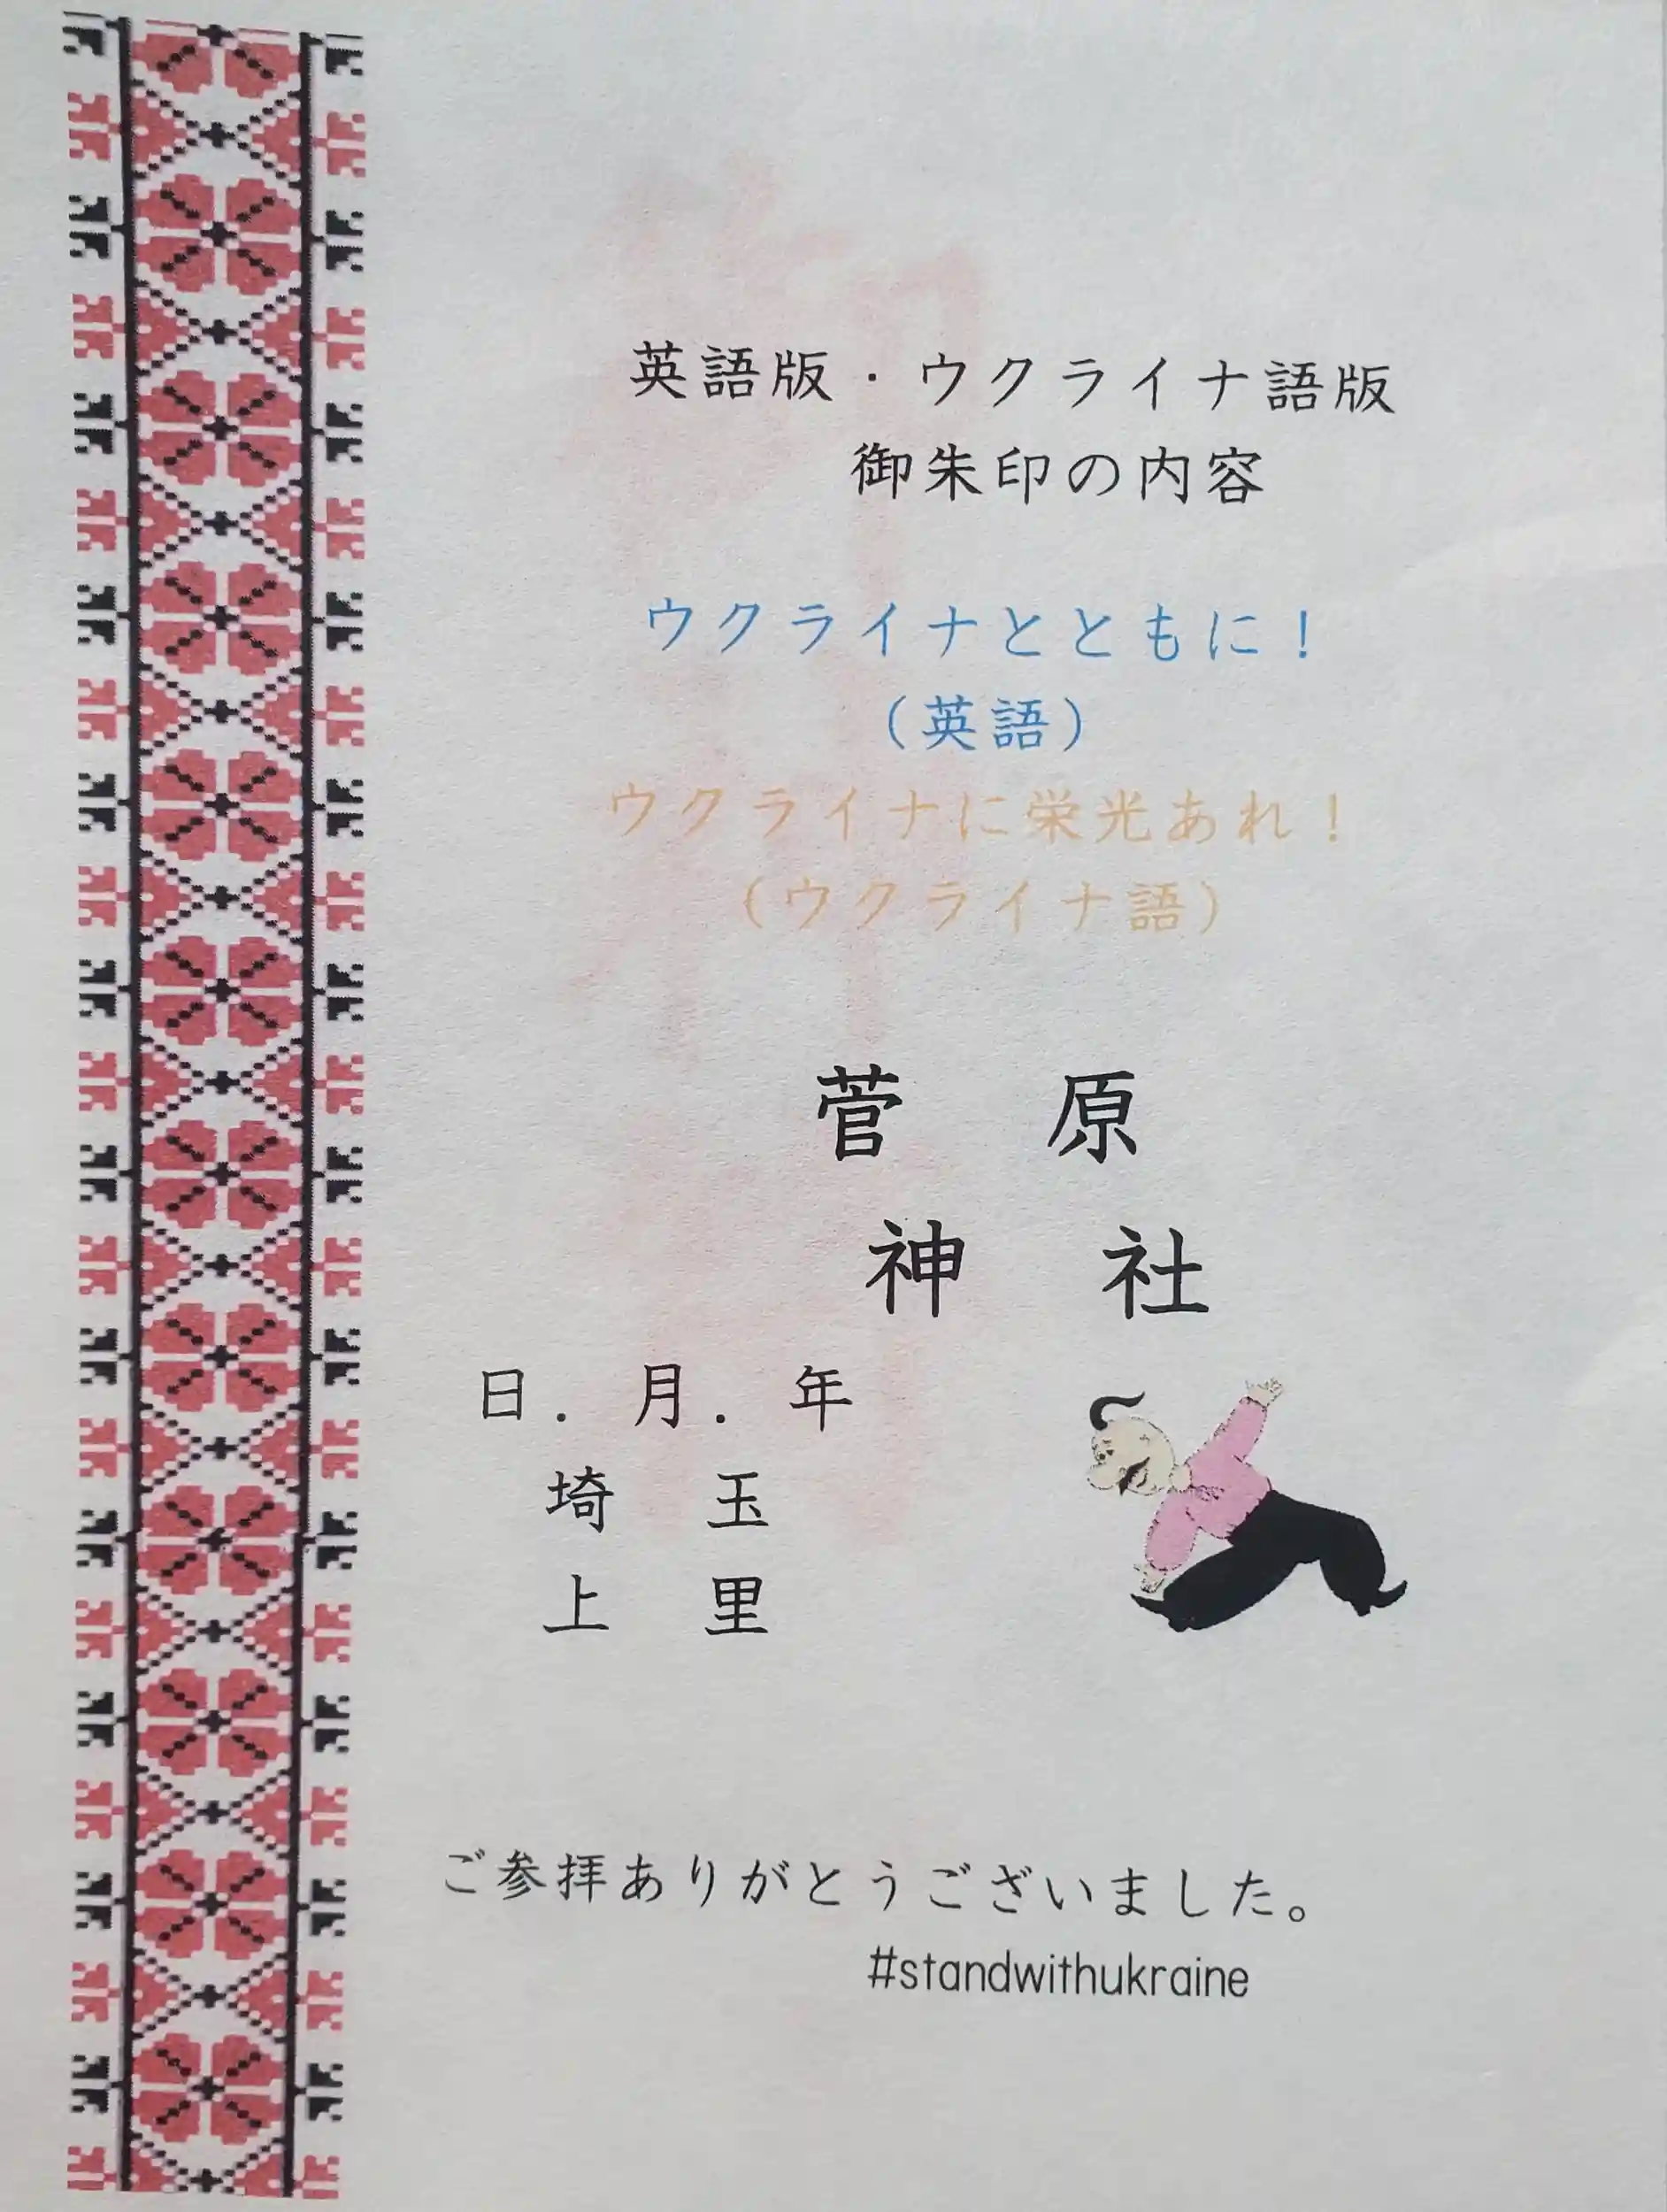 英語版・ウクライナ語版
御朱印の内容
ウクライナとともに！
（英語）
ウクライナに栄光あれ！
（ウクライナ語）
菅原
神社
日．月．年
埼玉
上里
ご参拝ありがとうございました。
#standwithukraine